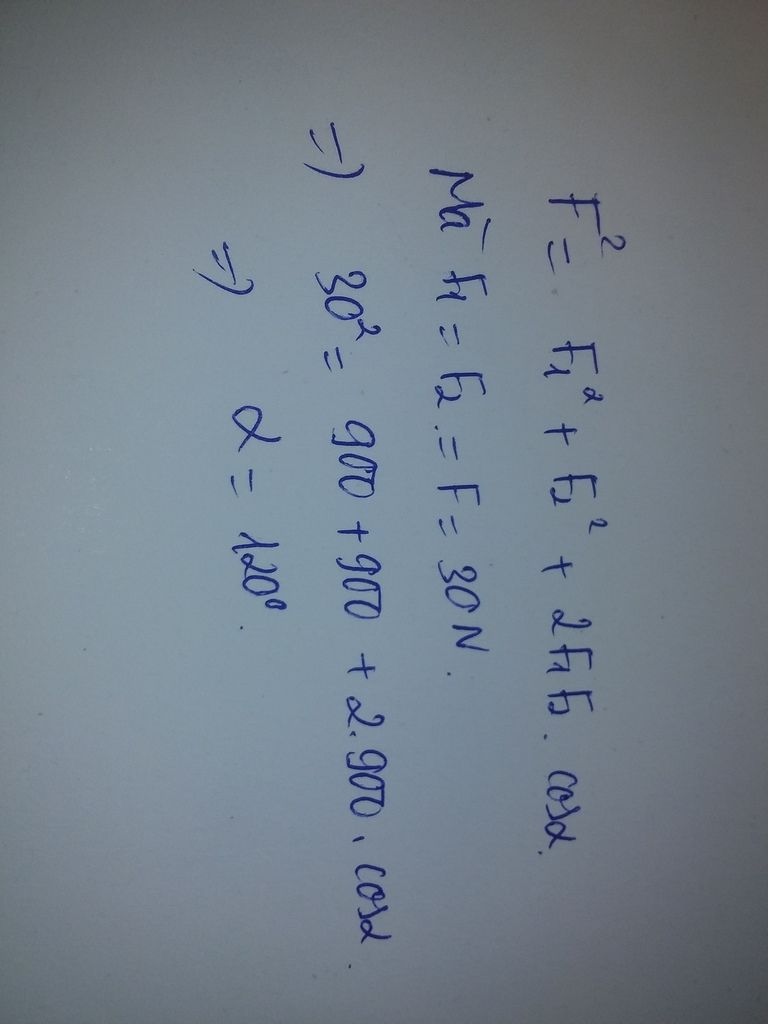 F² = F₁² + F₂² + 2F₁F₂. cosα.
Mà F₁ = F₂ = F = 30N.
=) 30² = 900 + 900 + 2.900. cosα.
=) α = 120°.